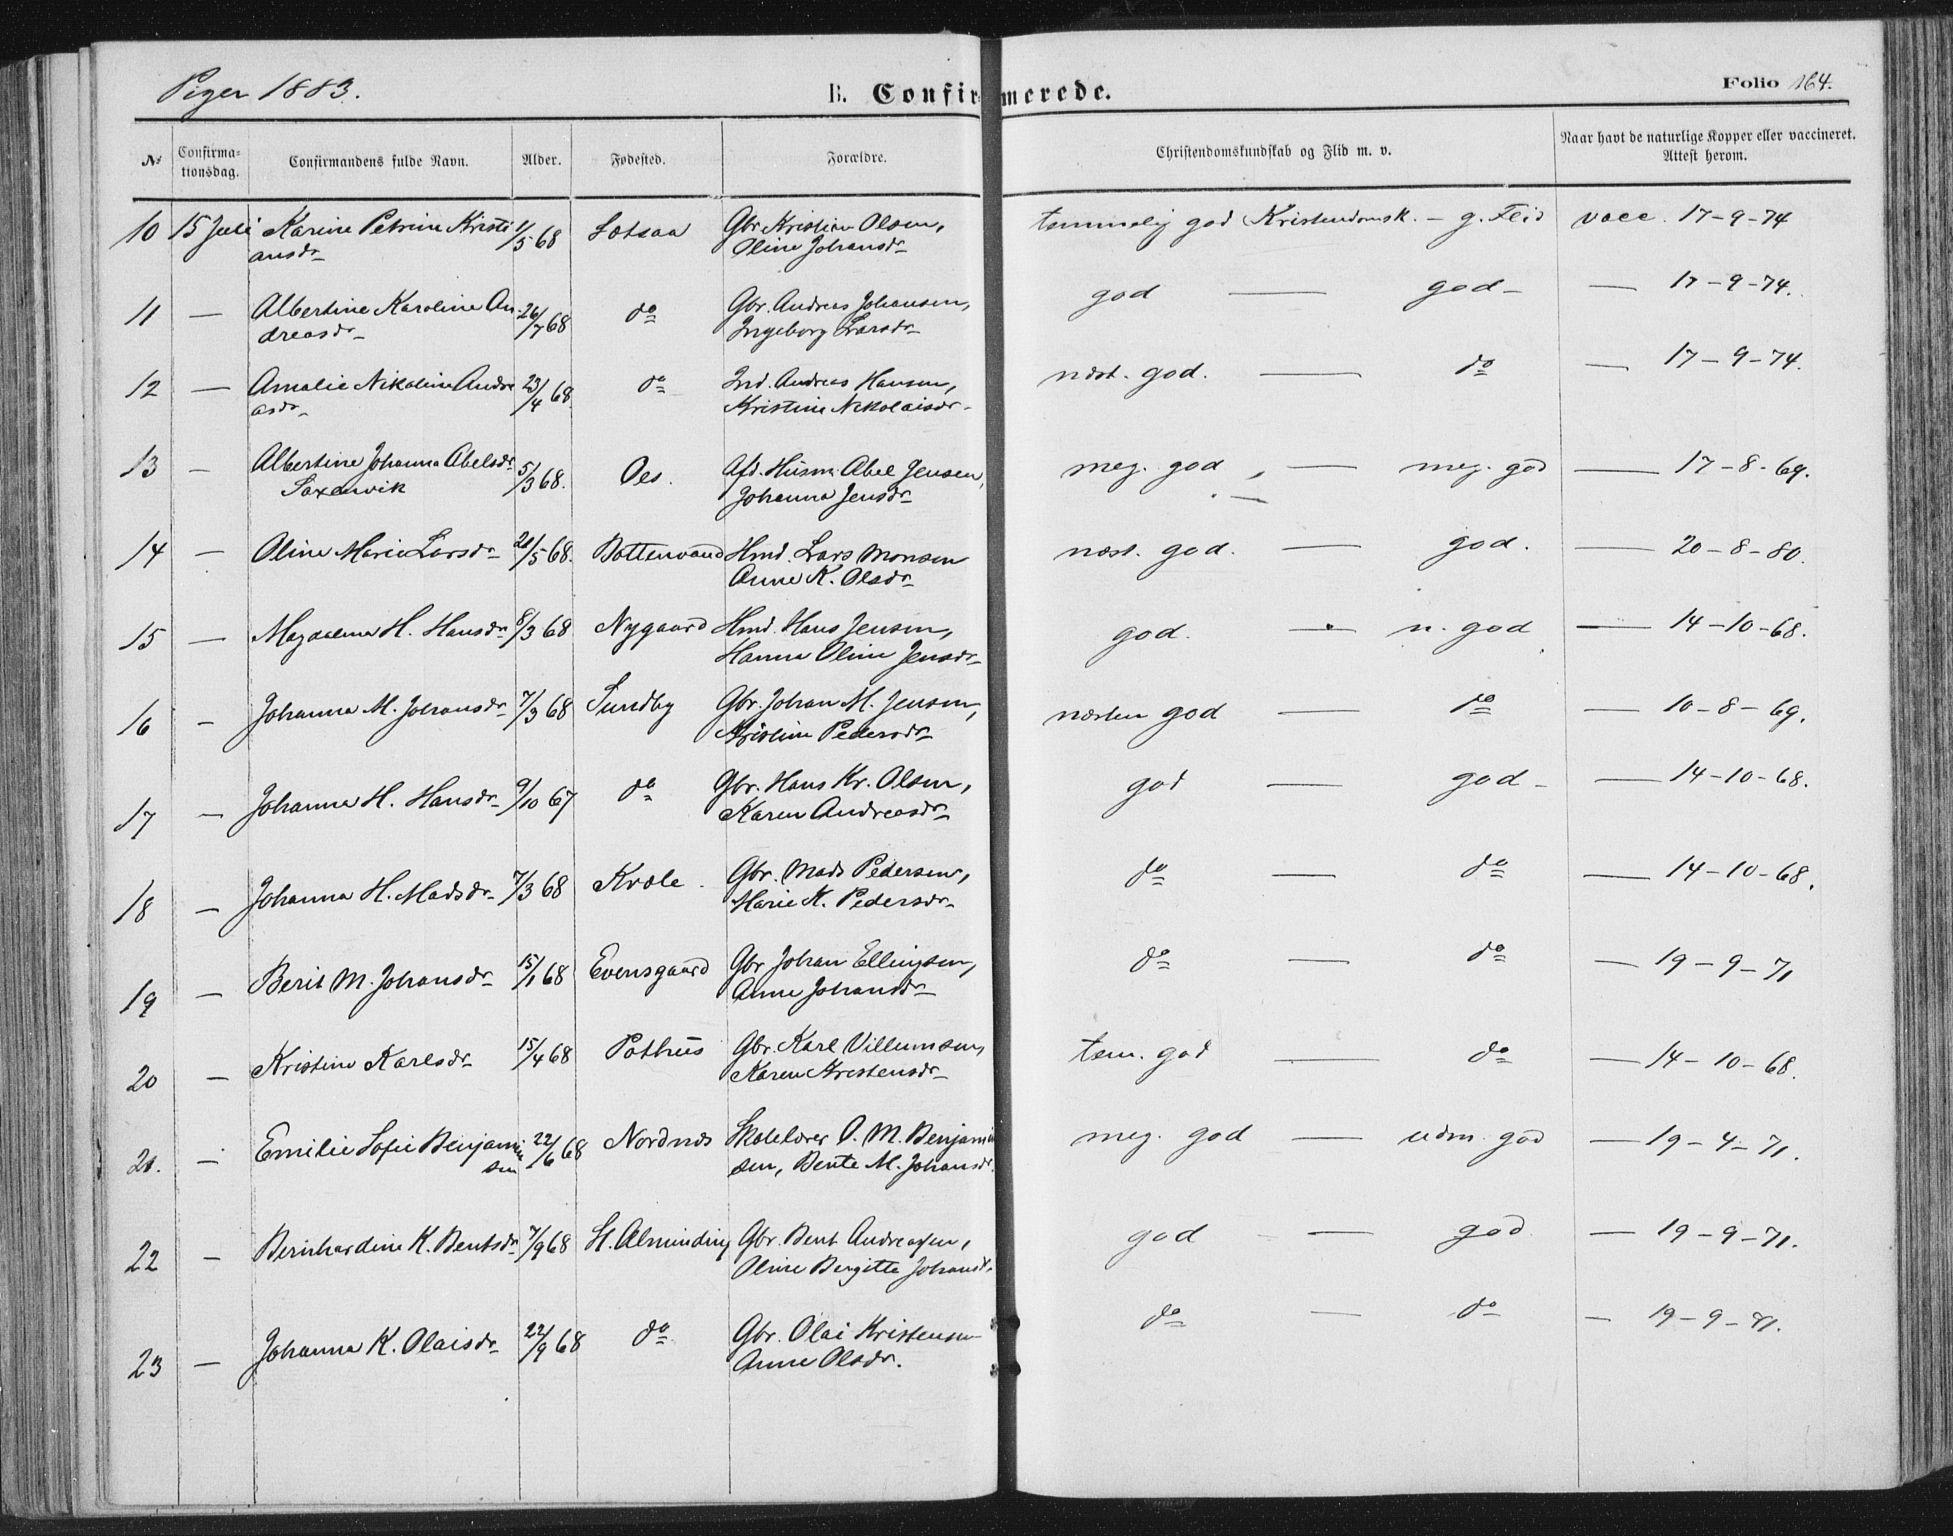 Piger 1883.
B. Confirmerede.
Folio 164.
No
Confirma-
tionsdag.
Confirmandens fulde Navn.
Alder.
Fødested.
Forældre.
Christendomskundskab og Flid m. v.
Naar havt de naturlige Kopper eller vaccineret.
Attest herom.
10 15 Juli Karine Petrine Kristi 1/5 68 Sotsaa Gbr Kristian Olsen, temmelig god Kristendomsk. – g. Flid vacc. 17-9-74
ansdr Oline Johansdr
11 — Albertine Karoline An- 26/7 68 do Gbr. Andreas Johansen, god — god – — 17-9-74.
dreasdr Ingeborg Larsdr
12 — Amalie Nikoline Andre 23/4 68. do Ind. Andreas Hansen, næst. god. — do — 17-9-74.
asdr Kristine Nikolaisdr
13 — Albertine Johanna Abelsdr 5/3 68. Oes. Afd. Husm. Abel Jensen, meg. god, — meg. god — 17-8-69.
Saxenvik Johanna Jensdr
14 — Oline Marie Larsdr 21/5 68. Bottenvand Hmd. Lars Monsen næst. god. — god. — 20-8-80.
Anne K. Olsdr
15 — Magdalena H. Hansdr 8/3 68 Nygaard Hmd. Hans Jensen, god. — n. god — 14-10-68.
Hanna Oline Jensdr
16 — Johanna M. Johansdr 7/3 68 Sundby Gbr. Johan M. Jensen, næsten god — do — 10-8-69.
Kristine Pedersdr
17 — Johanna H. Hansdr 9/10 67 do Gbr. Hans Kr. Olsen, god — god – — 14-10-68.
Karen Andreasdr
18 — Johanna H. Madsdr 7/3 68 Kvæle. Gbr. Mads Pedersen, do — do — 14-10-68.
Marie K. Pedersdr
19 — Berit M. Johansdr 15/1 68 Evensgaard Gbr Johan Ellingsen, do — do — 19-9-71
Anne Johansdr
20 — Kristine Karlsdr 15/4 68 Pothus Gbr. Karl Villumsen, tem. god — do — 14-10-68.
Karen Kristensdr
21. — Emilie Sofie Benjamin 22/6 68 Nordnæs Skolelærer O. M. Benjamin meg. god — udm. god — 19-4-71.
sen sen, Bente M. Johansdr.
22 — Bernhardine K. Bentsdr 7/9 68 St. Alminding Gbr. Bent Andreasen, god — god — 19-9-71.
Oline Bergitte Johansd.
23 — Johanna K. Olaisdr 22/9 68 do Gbr. Olai Kristensen do — do — 19-9-81.
Anne Olsdr.